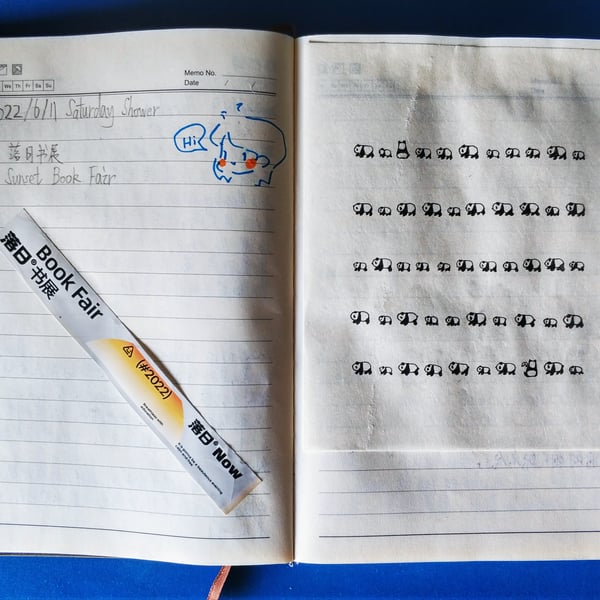 Memo No.
Date
We Th Fr Sa Su
2022/6/11 Saturday Shower
Hi
落日书展
Sunset Book Fair
Book Fair
落日®书展
(#2022)
落日® Now